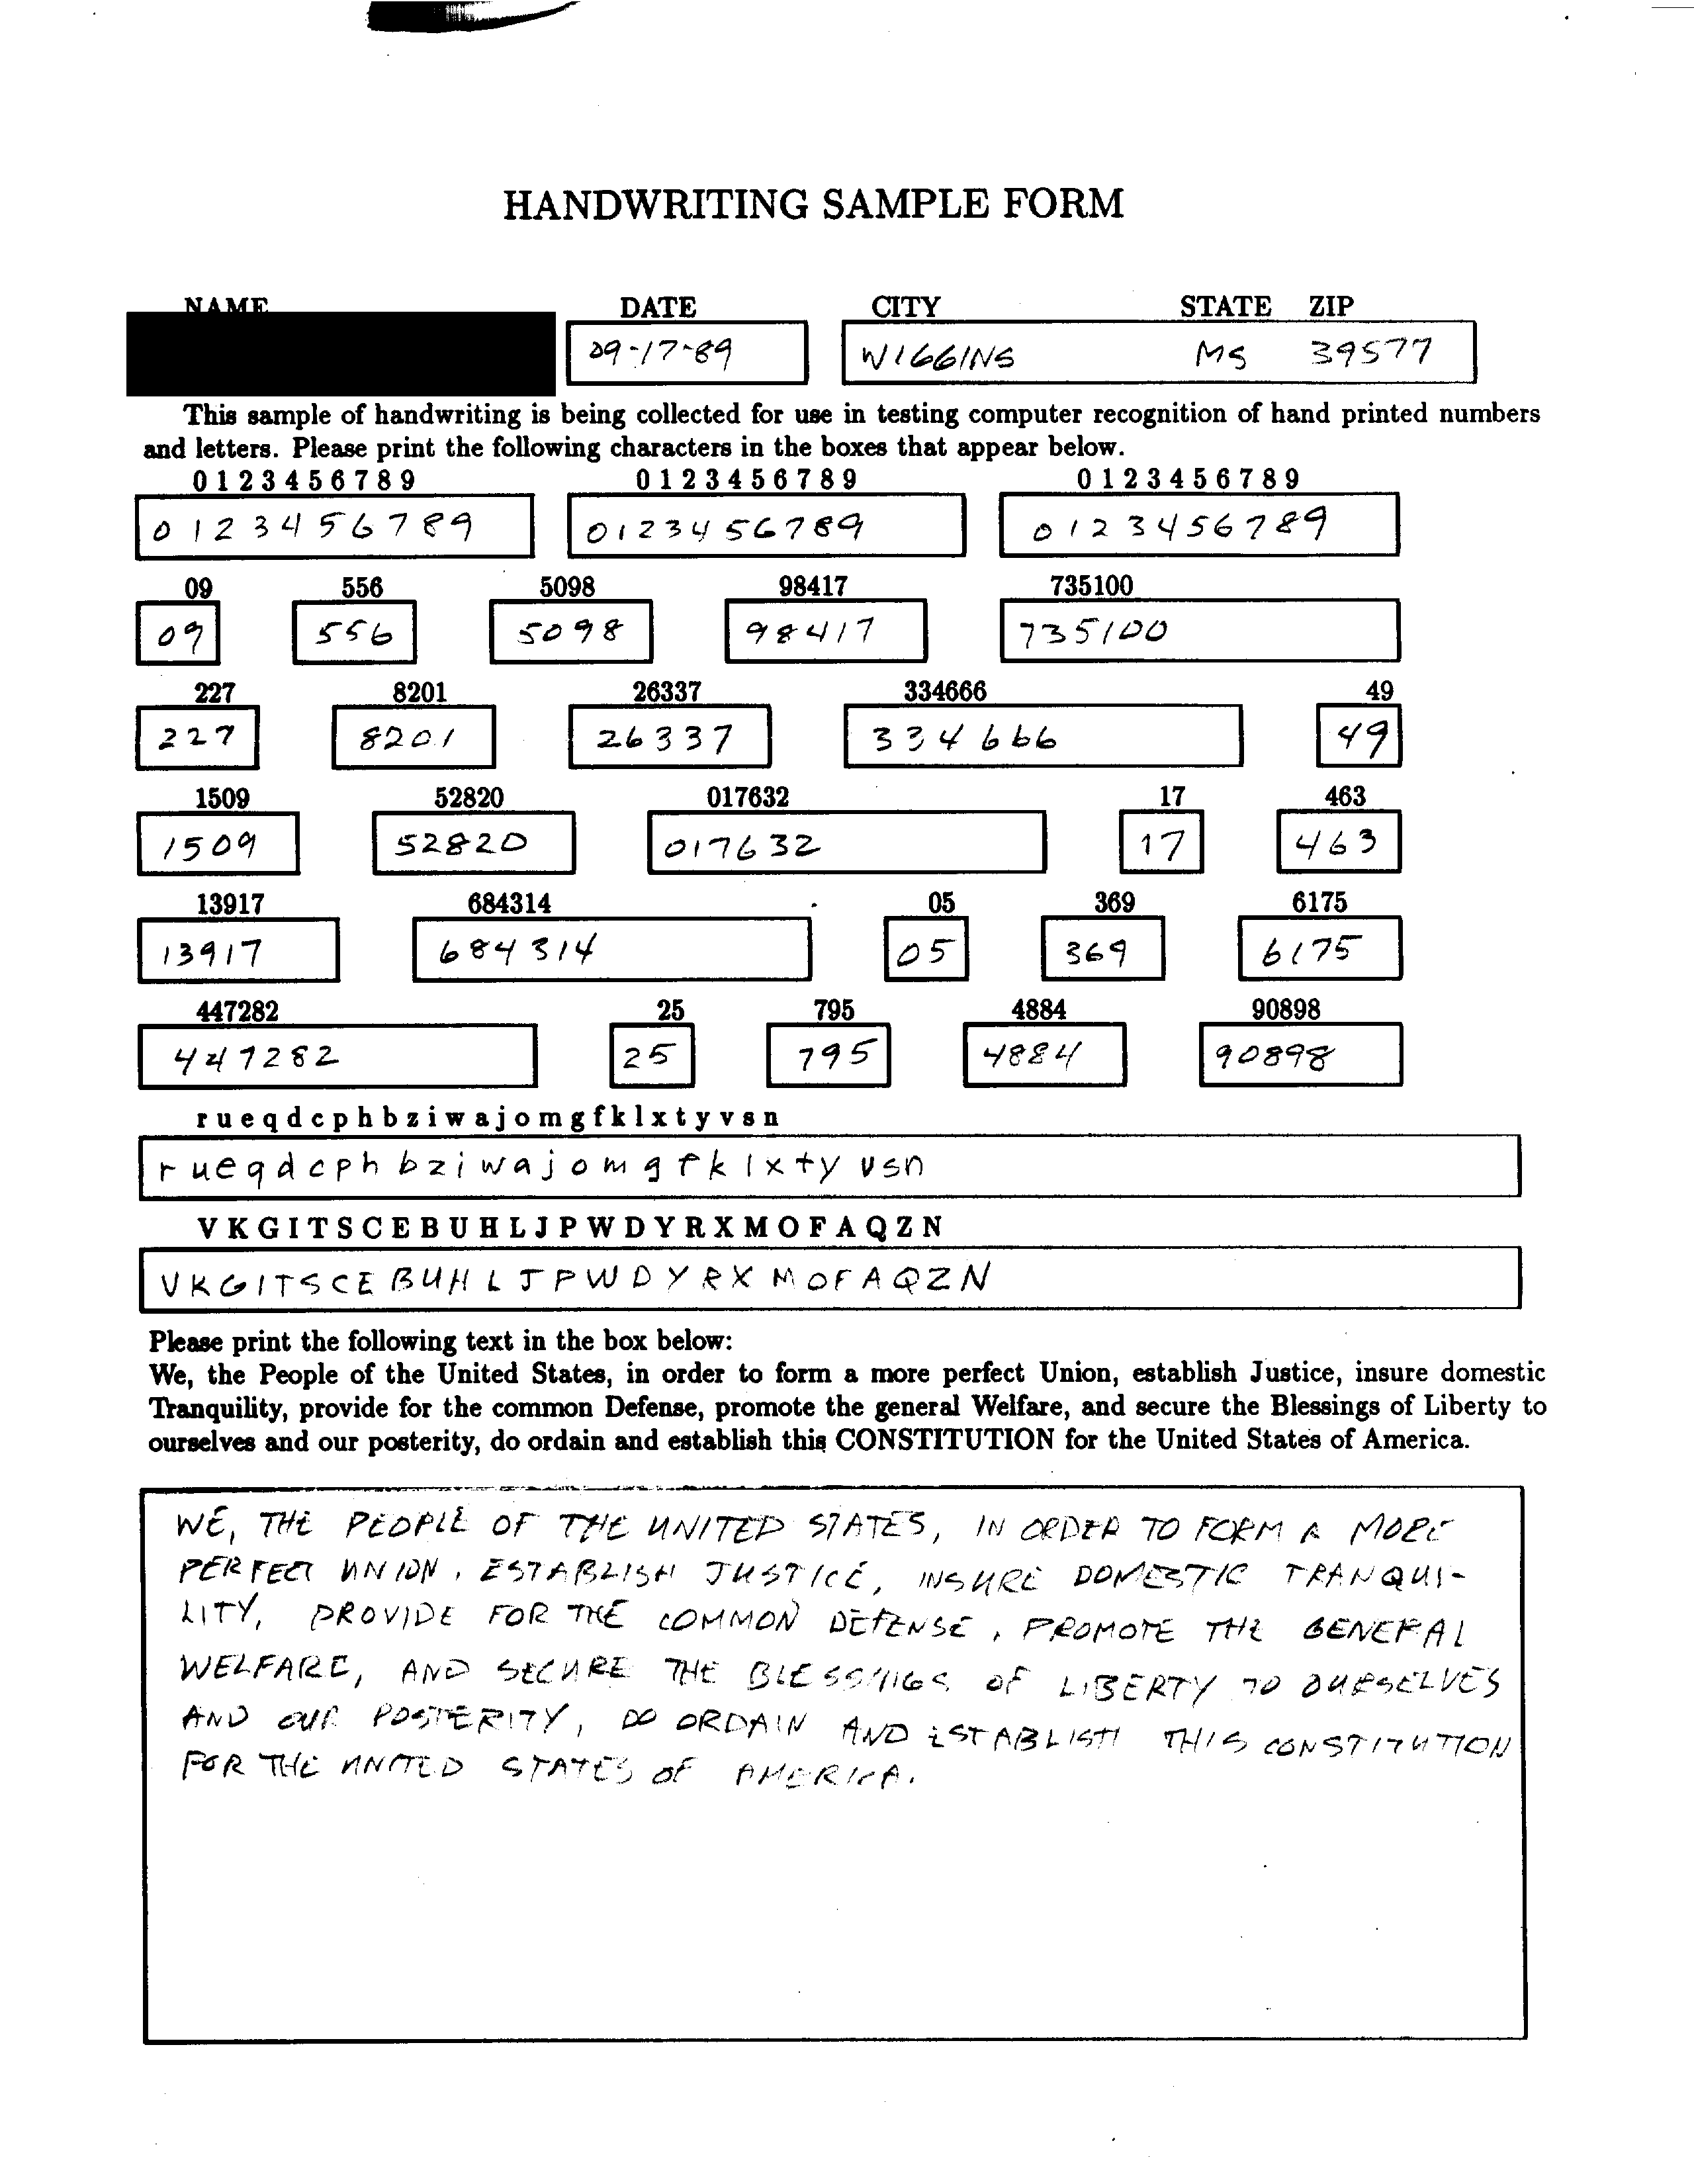 HANDWRITING SAMPLE FORM
NAME DATE CITY STATE ZIP
09-17-89 WIGGINS MS 39577
This sample of handwriting is being collected for use in testing computer recognition of hand printed numbers
and letters. Please print the following characters in the boxes that appear below.
0 1 2 3 4 5 6 7 8 9 0 1 2 3 4 5 6 7 8 9 0 1 2 3 4 5 6 7 8 9
0 1 2 3 4 5 6 7 8 9 0 1 2 3 4 5 6 7 8 9 0 1 2 3 4 5 6 7 8 9
09 556 5098 98417 735100
09 556 5098 98417 735100
227 8201 26337 334666 49
227 8201 26337 334666 49
1509 52820 017632 17 463
1509 52820 017632 17 463
13917 684314 05 369 6175
13917 684314 05 369 6175
447282 25 795 4884 90898
447282 25 795 4884 90898
r u e q d c p h b z i w a j o m g f k l x t y v s n
r u e q d c p h b z i w a j o m g f k l x t y v s n
V K G I T S C E B U H L J P W D Y R X M O F A Q Z N
V K G I T S C E B U H L J P W D Y R X M O F A Q Z N
Please print the following text in the box below:
We, the People of the United States, in order to form a more perfect Union, establish Justice, insure domestic
Tranquility, provide for the common Defense, promote the general Welfare, and secure the Blessings of Liberty to
ourselves and our posterity, do ordain and establish this CONSTITUTION for the United States of America.
WE, THE PEOPLE OF THE UNITED STATES, IN ORDER TO FORM A MORE
PERFECT UNION, ESTABLISH JUSTICE, INSURE DOMESTIC TRANQUI-
LITY, PROVIDE FOR THE COMMON DEFENSE, PROMOTE THE GENERAL
WELFARE, AND SECURE THE BLESSINGS OF LIBERTY TO OURSELVES
AND OUR POSTERITY, DO ORDAIN AND ESTABLISH THIS CONSTITUTION
FOR THE UNITED STATES OF AMERICA.